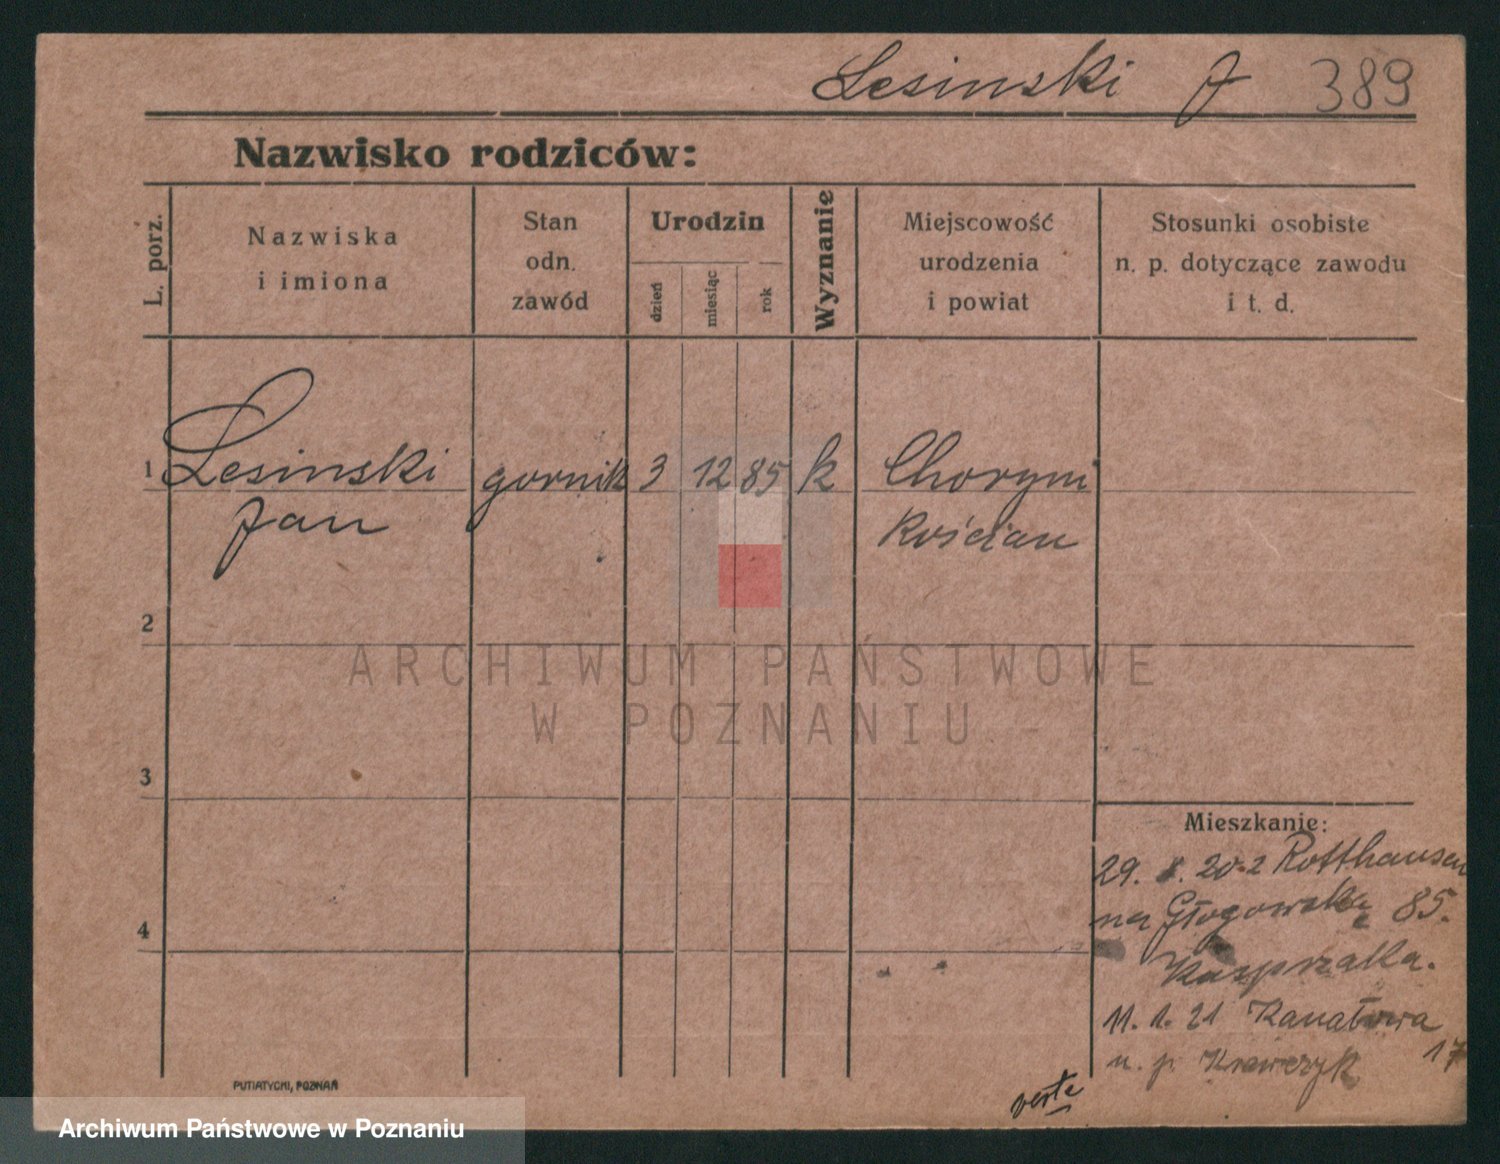 Lesinski J 389
Nazwisko rodziców:
L. porz.
Nazwiska
i imiona
Stan
odn.
zawód
Urodzin
dzień
miesiąc
rok
Wyznanie
Miejscowość
urodzenia
i powiat
Stosunki osobiste
n. p. dotyczące zawodu
i t. d.
1 Lesinski gornik 3 12 85 k Choryni
Jan Kościan
2
3
4
Mieszkanie:
29. 20 z Rotthausen
na Głogowską 85.
Kasprzaka.
11. 1. 21 Kanałowa
17
u. p. Krawczyk
verte
PUTIATYCKI, POZNAŃ
ARCHIWUM PAŃSTWOWE
W POZNANIU
Archiwum Państwowe w Poznaniu